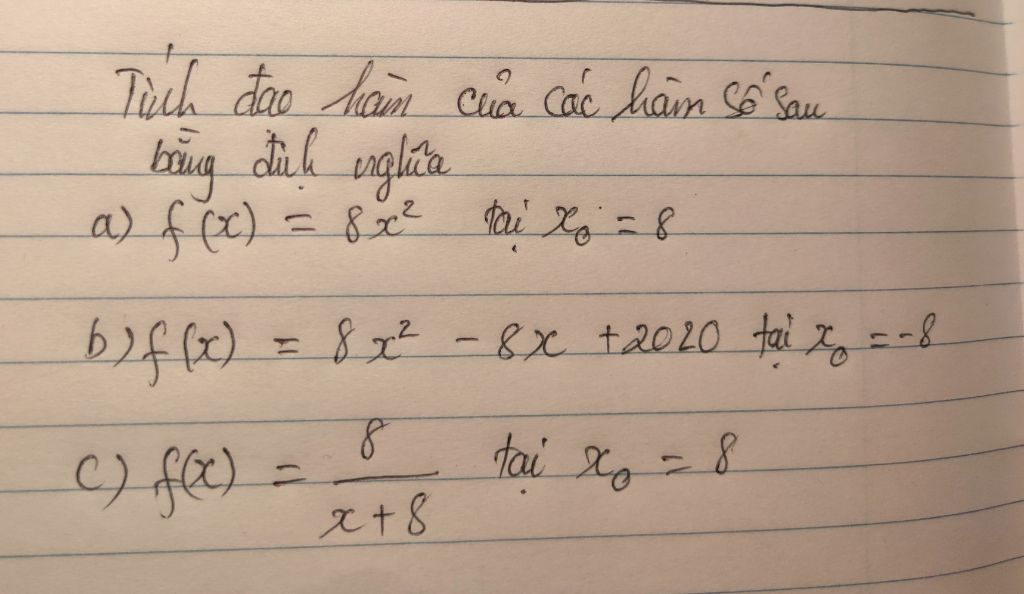 Tính đạo hàm của các hàm số sau
bằng định nghĩa
a) f(x) = 8x² tại x₀ = 8
b) f(x) = 8x² - 8x + 2020 tại x₀ = -8
c) f(x) = 8/(x+8) tại x₀ = 8